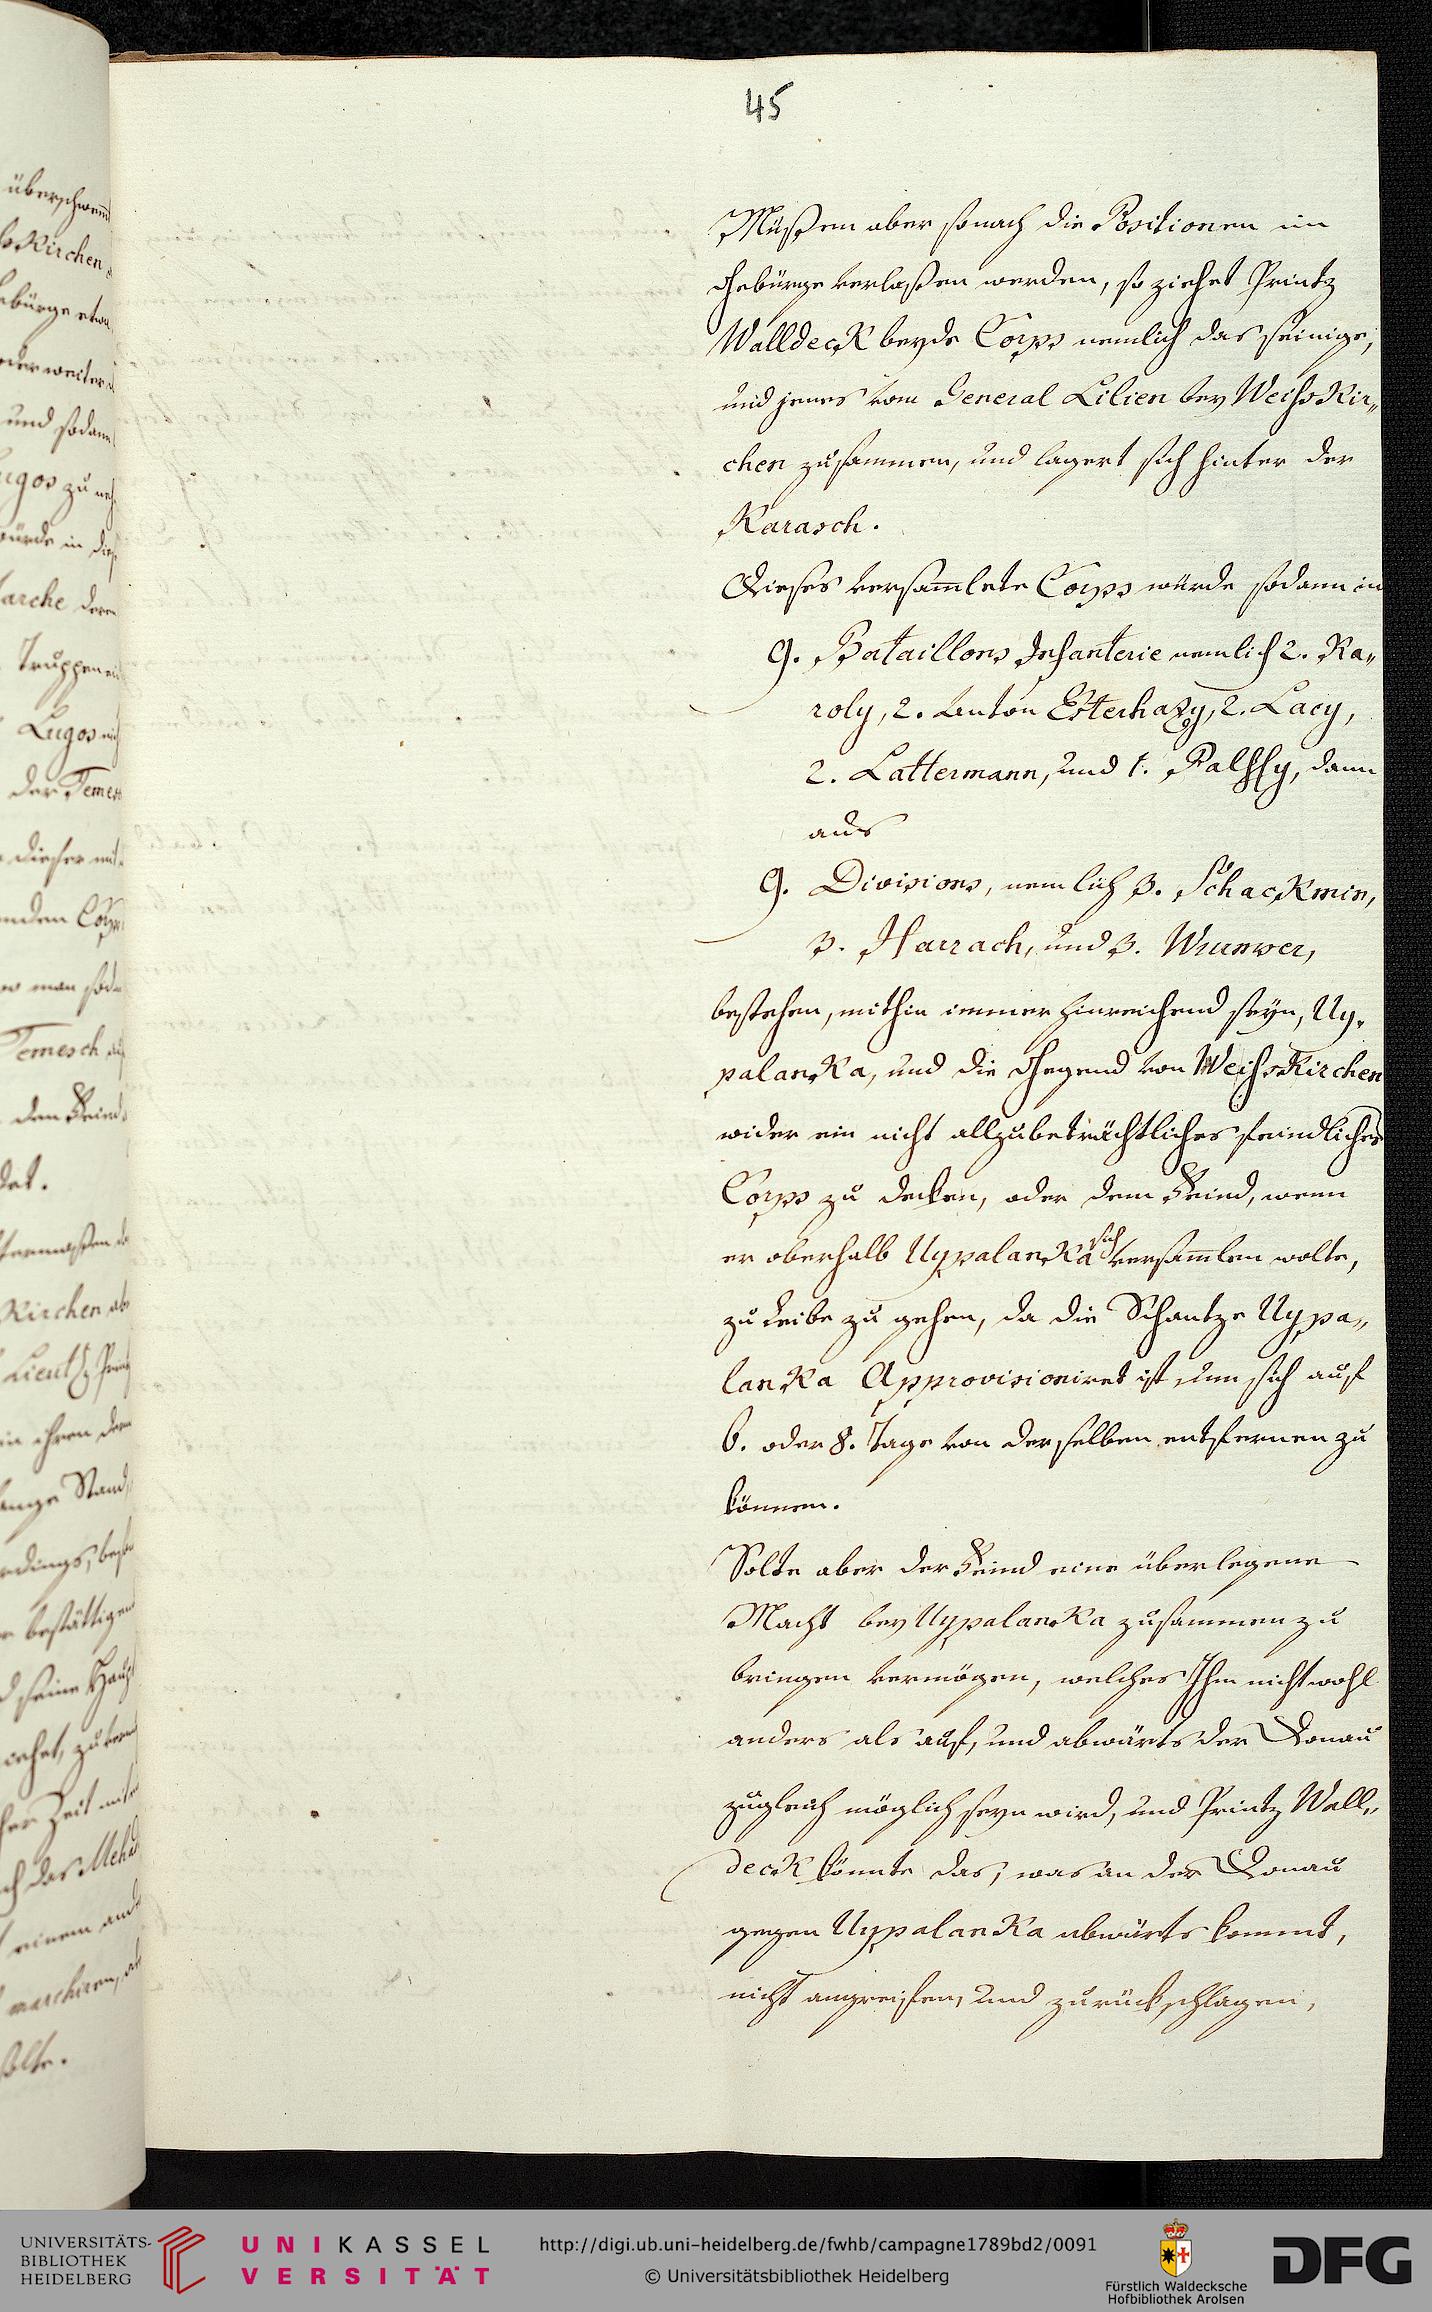 45
Müßen aber sonach die Positionen im
Gebürge verlaßen werden, so ziehet Printz
Walldeck beyde Corps nemlich das seinige,
und jenes vom General Lilien bey Weiskir„
chen zusammen, und lagert sich hinter der
Karasch.
Dieses versam̅lete Corps würde sodann in
9. Bataillons Infanterie nemlich 2. Ka„
roly, 2. Anton Esterhazy, 2. Lacy,
2. Lattermann, und 1. Palffy, dann
aus
9. Divisions, nemlich 3. Schackmin,
3. Harrach, und 3. Wurmser,
bestehen, mithin immer hinreichend seyn, Uy„
palanka, und die Gegend von Weiskirchen
wider ein nicht allzubeträchtliches feindliches
Corps zu decken, oder dem Feind, wenn
er oberhalb Uypalanka sich versam̅len wolte,
zu Leibe zu gehen, da die Schantze Uypa„
lanka Approvisioniret ist, um sich auf
6. oder 8. Tage von derselben entfernen zu
können.
Solte aber der Feind eine überlegene
Macht bey Uypalanka zusammen zu
bringen vermögen, welches Ihm nicht wohl
anders als auf, und abwärts der Donau
zugleich möglich seyn wird, und Printz Wall„
deck könnte das, was an der Donau
gegen Uypalanka abwärts kommt,
nicht angreifen, und zurückschlagen,
UNIVERSITÄTS-
BIBLIOTHEK
HEIDELBERG
UNIKASSEL
VERSITÄT
http://digi.ub.uni-heidelberg.de/fwhb/campagne1789bd2/0091
© Universitätsbibliothek Heidelberg
Fürstlich Waldecksche
Hofbibliothek Arolsen
DFG